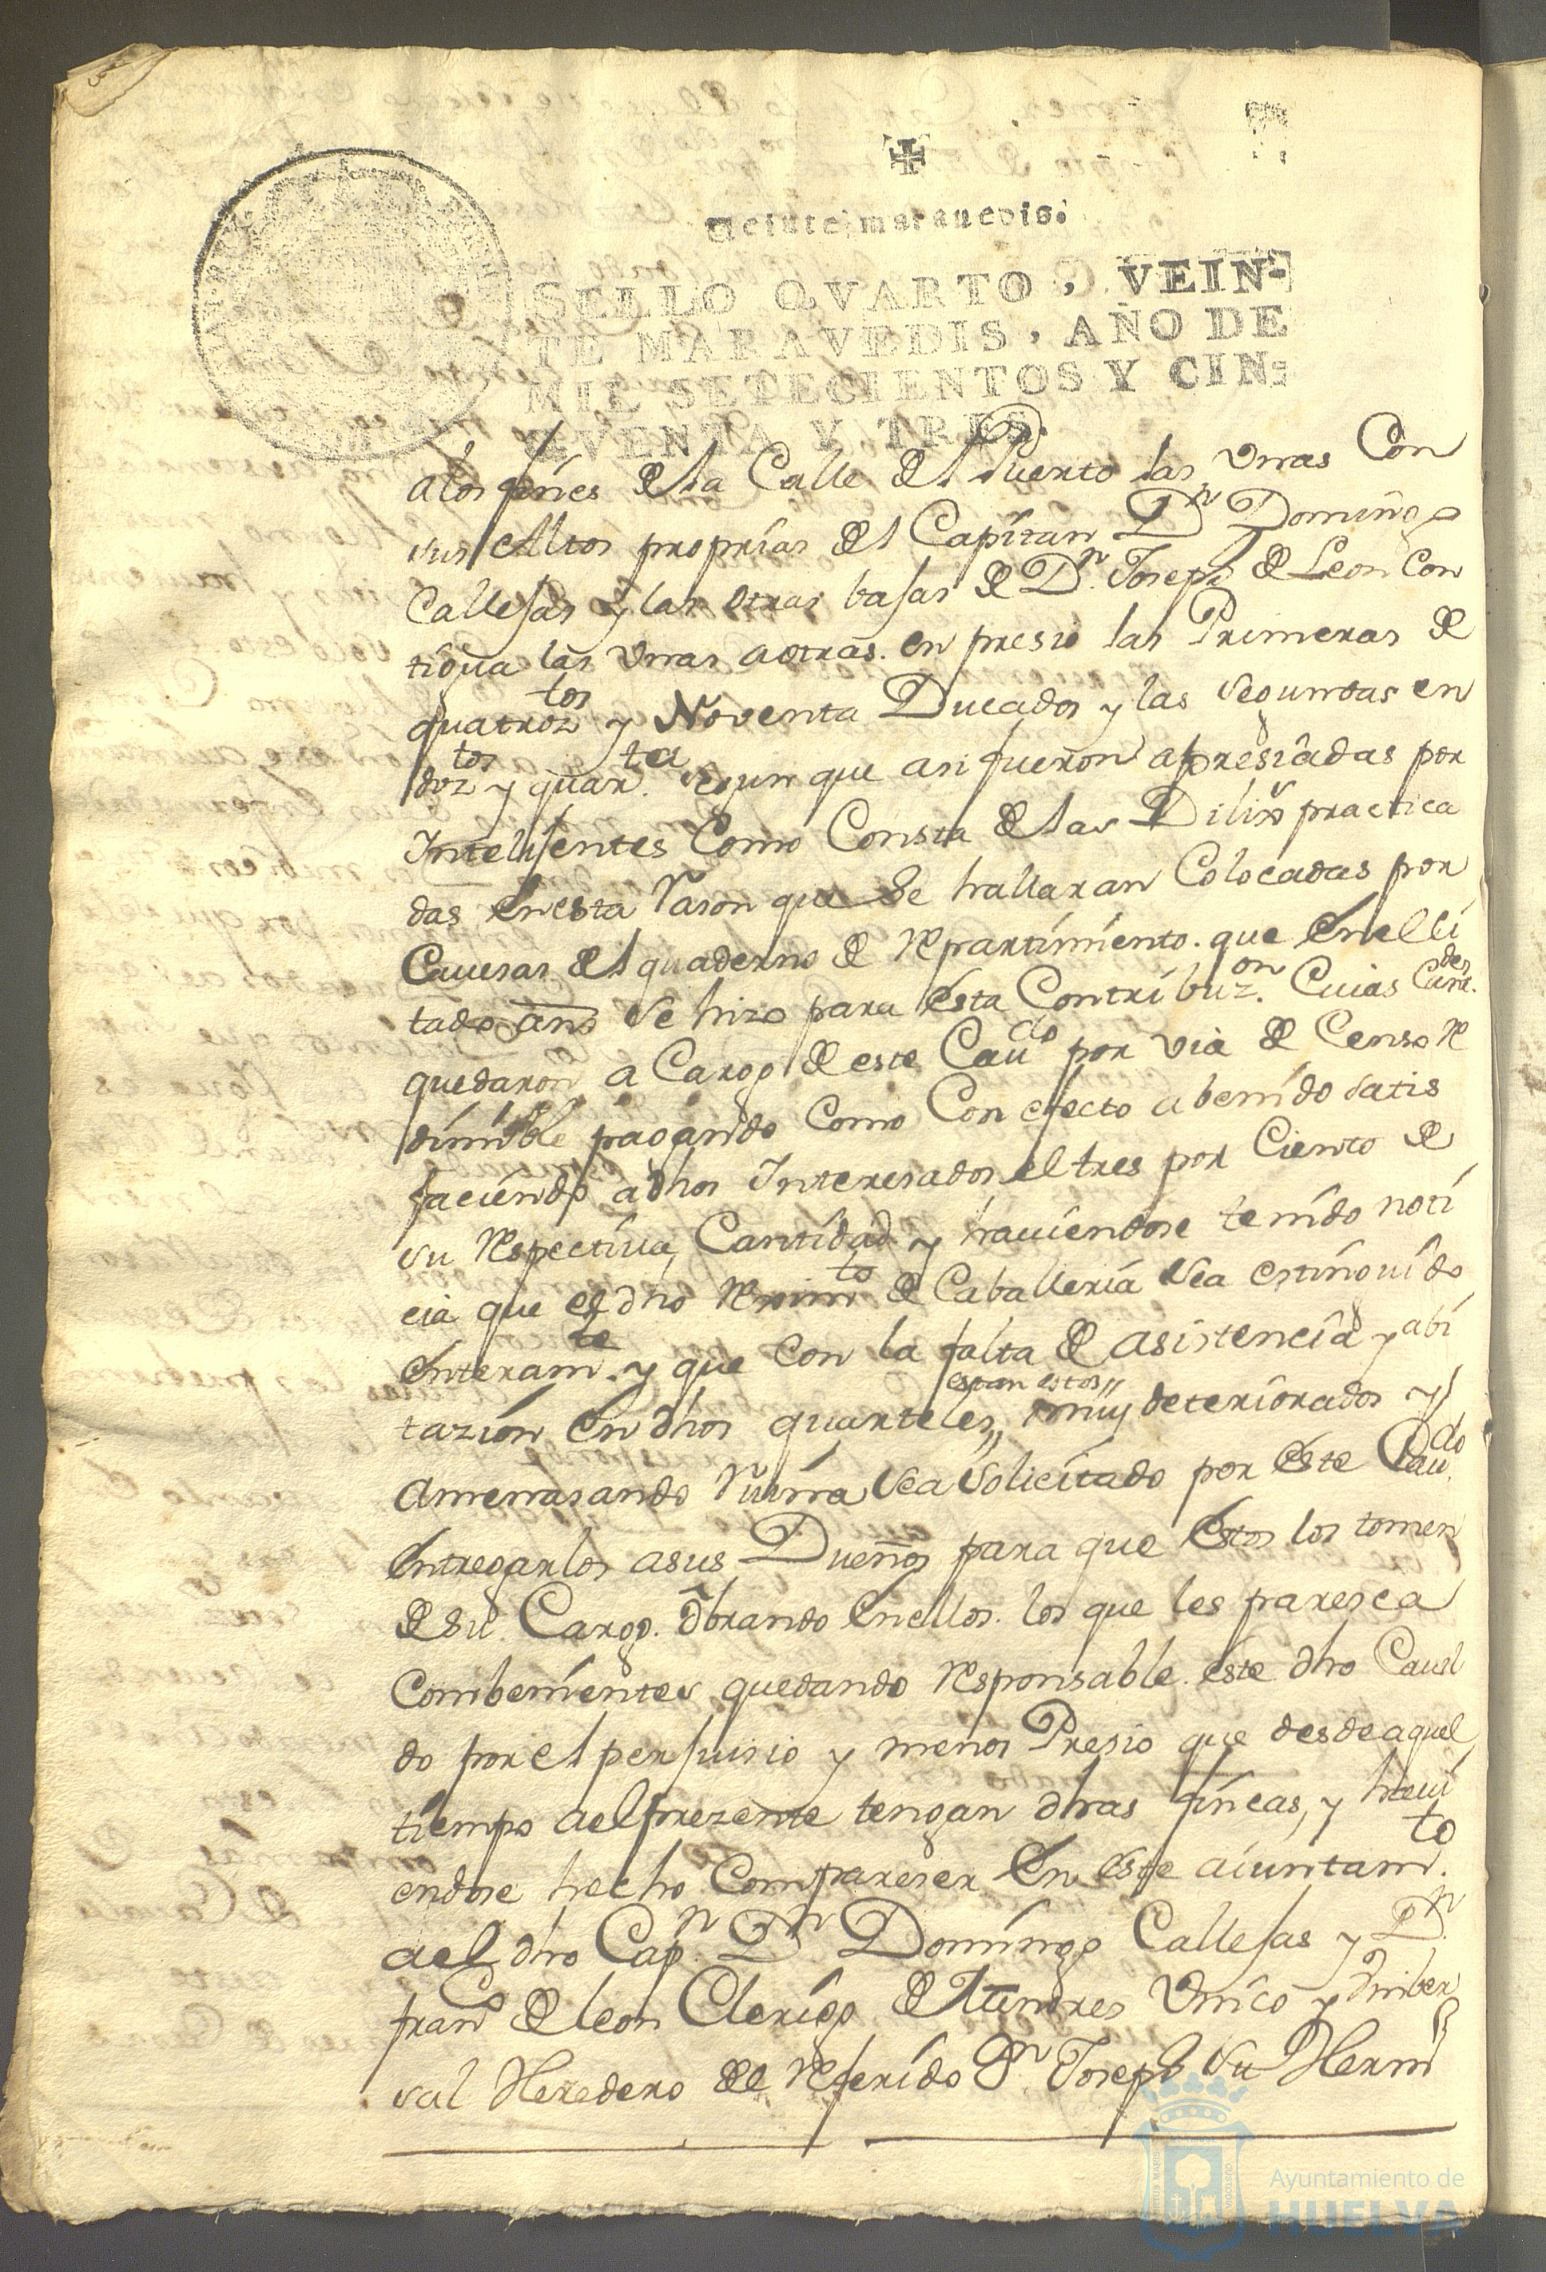 Veinte maravedis.
SELLO QVARTO, VEIN-
TE MARAVEDIS, AÑO DE
MIL SETECIENTOS Y CIN-
QVENTA Y TRES.
alos fines de la Calle del Puerto las Unas Con
sus Altos proprias del Capitan Dn Domingo
Callejas y las otras bajas de Dn. Joseph de Leon Con
tigua las Unas a otras. en presio las Primeras de
quatroztos y Noventa Ducados y las segundas en
doztos y quarta. segun que asi fueron apresiadas por
Intelijentes Como Consta de las Dilixs practica
das en esta Rason que se hallaran Colocadas por
Cavesas del quaderno de repartimiento. que en el ci
tado año se hizo para esta Contribuzon. Cuias Cantdes.
quedaron a Cargo de este Cavdo por via de Censo re
dimible pagando como Con efecto a benido satis
faciendo a dhos Interesados el tres por Ciento de
su respectiva Cantidad y haviendose tenido noti
cia que el dho regimto de Caballeria sea estinguido
enteramte. y que con la falta de asistencia y abi
tazion en dhos quarteles,, estan estos,, muy deteriorados y
amenasando Ruina sea solicitado por este Cavdo.
entregarlos asus Dueños para que estos los tomen
de su Cargo. obrando en ellos. los que les paresca
Combenientes quedando responsable. este dho Cavil
do por el perjuisio y menos Presio que desde aquel
tiempo ael prezente tengan dhas fincas, y havi
endose hecho Compareser en este aiuntamto.
ael dho Capn. Dn Domingo Callejas y Dn.
franco de leon Clerigo de Menores Unico y Vniber
sal Heredero del referido Dn Joseph su Hermo
Ayuntamiento de
HUELVA